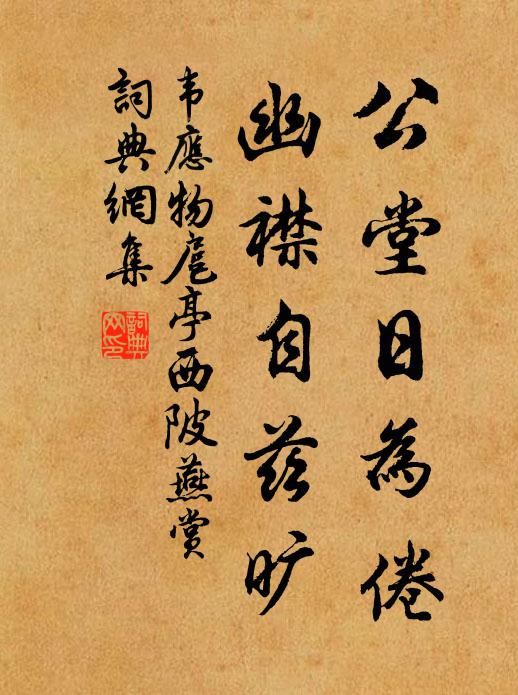 公堂日為倦
幽襟自茲旷
韦應物扈亭西陂燕賞
詞典網集
詞典網印